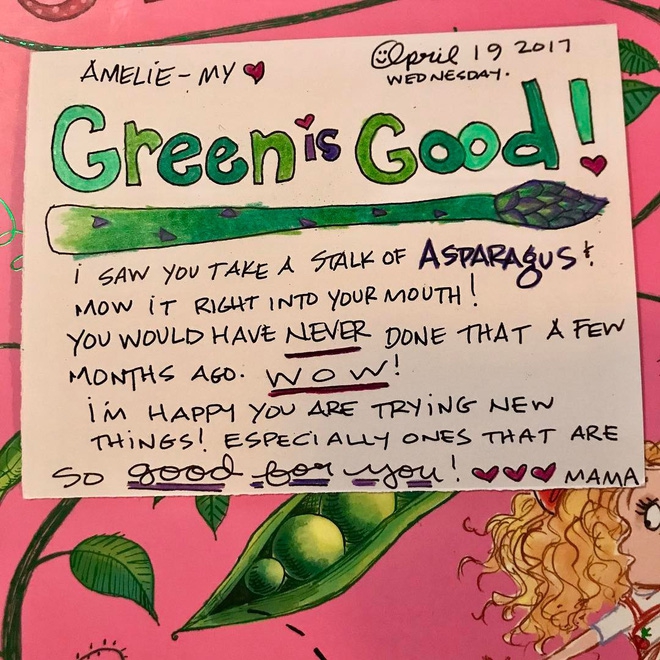 AMELIE - MY ♥
April 19 2017
WEDNESDAY.
Green is Good!
I SAW YOU TAKE A STALK OF ASPARAGUS &
MOW IT RIGHT INTO YOUR MOUTH!
YOU WOULD HAVE NEVER DONE THAT A FEW
MONTHS AGO. WOW!
I'M HAPPY YOU ARE TRYING NEW
THINGS! ESPECIALLY ONES THAT ARE
SO good for you! ♥♥♥ MAMA